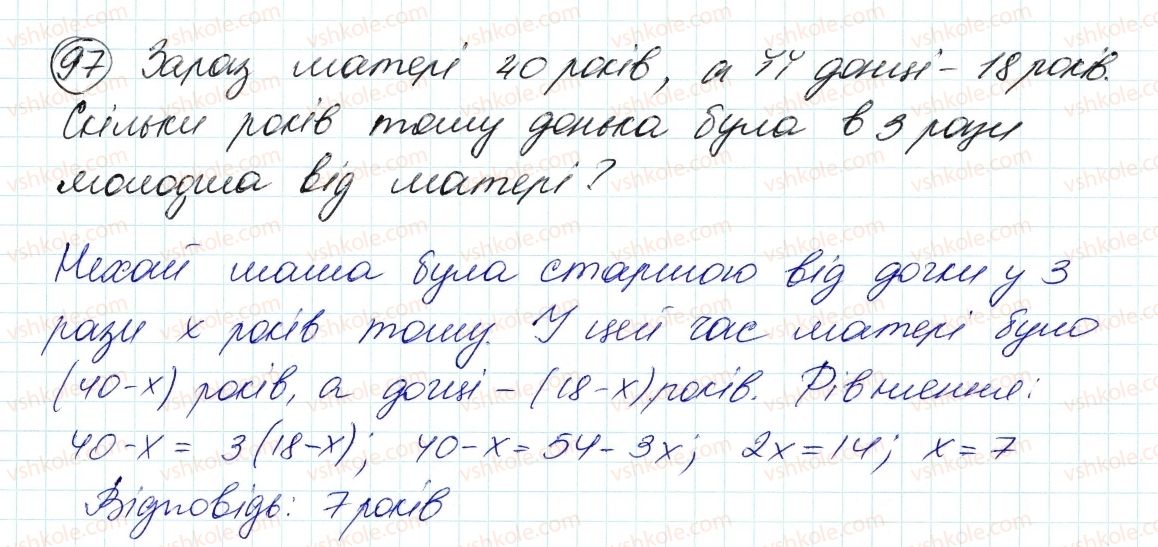 97 Зараз матері 40 років, а її доньці - 18 років.
Скільки років тому донька була в 3 рази
молодша від матері?
Нехай мама була старшою від дочки у 3
рази x років тому. У цей час матері було
(40-x) років, а дочці - (18-x) років. Рівняння:
40-x = 3(18-x); 40-x = 54-3x; 2x = 14; x = 7
Відповідь: 7 років